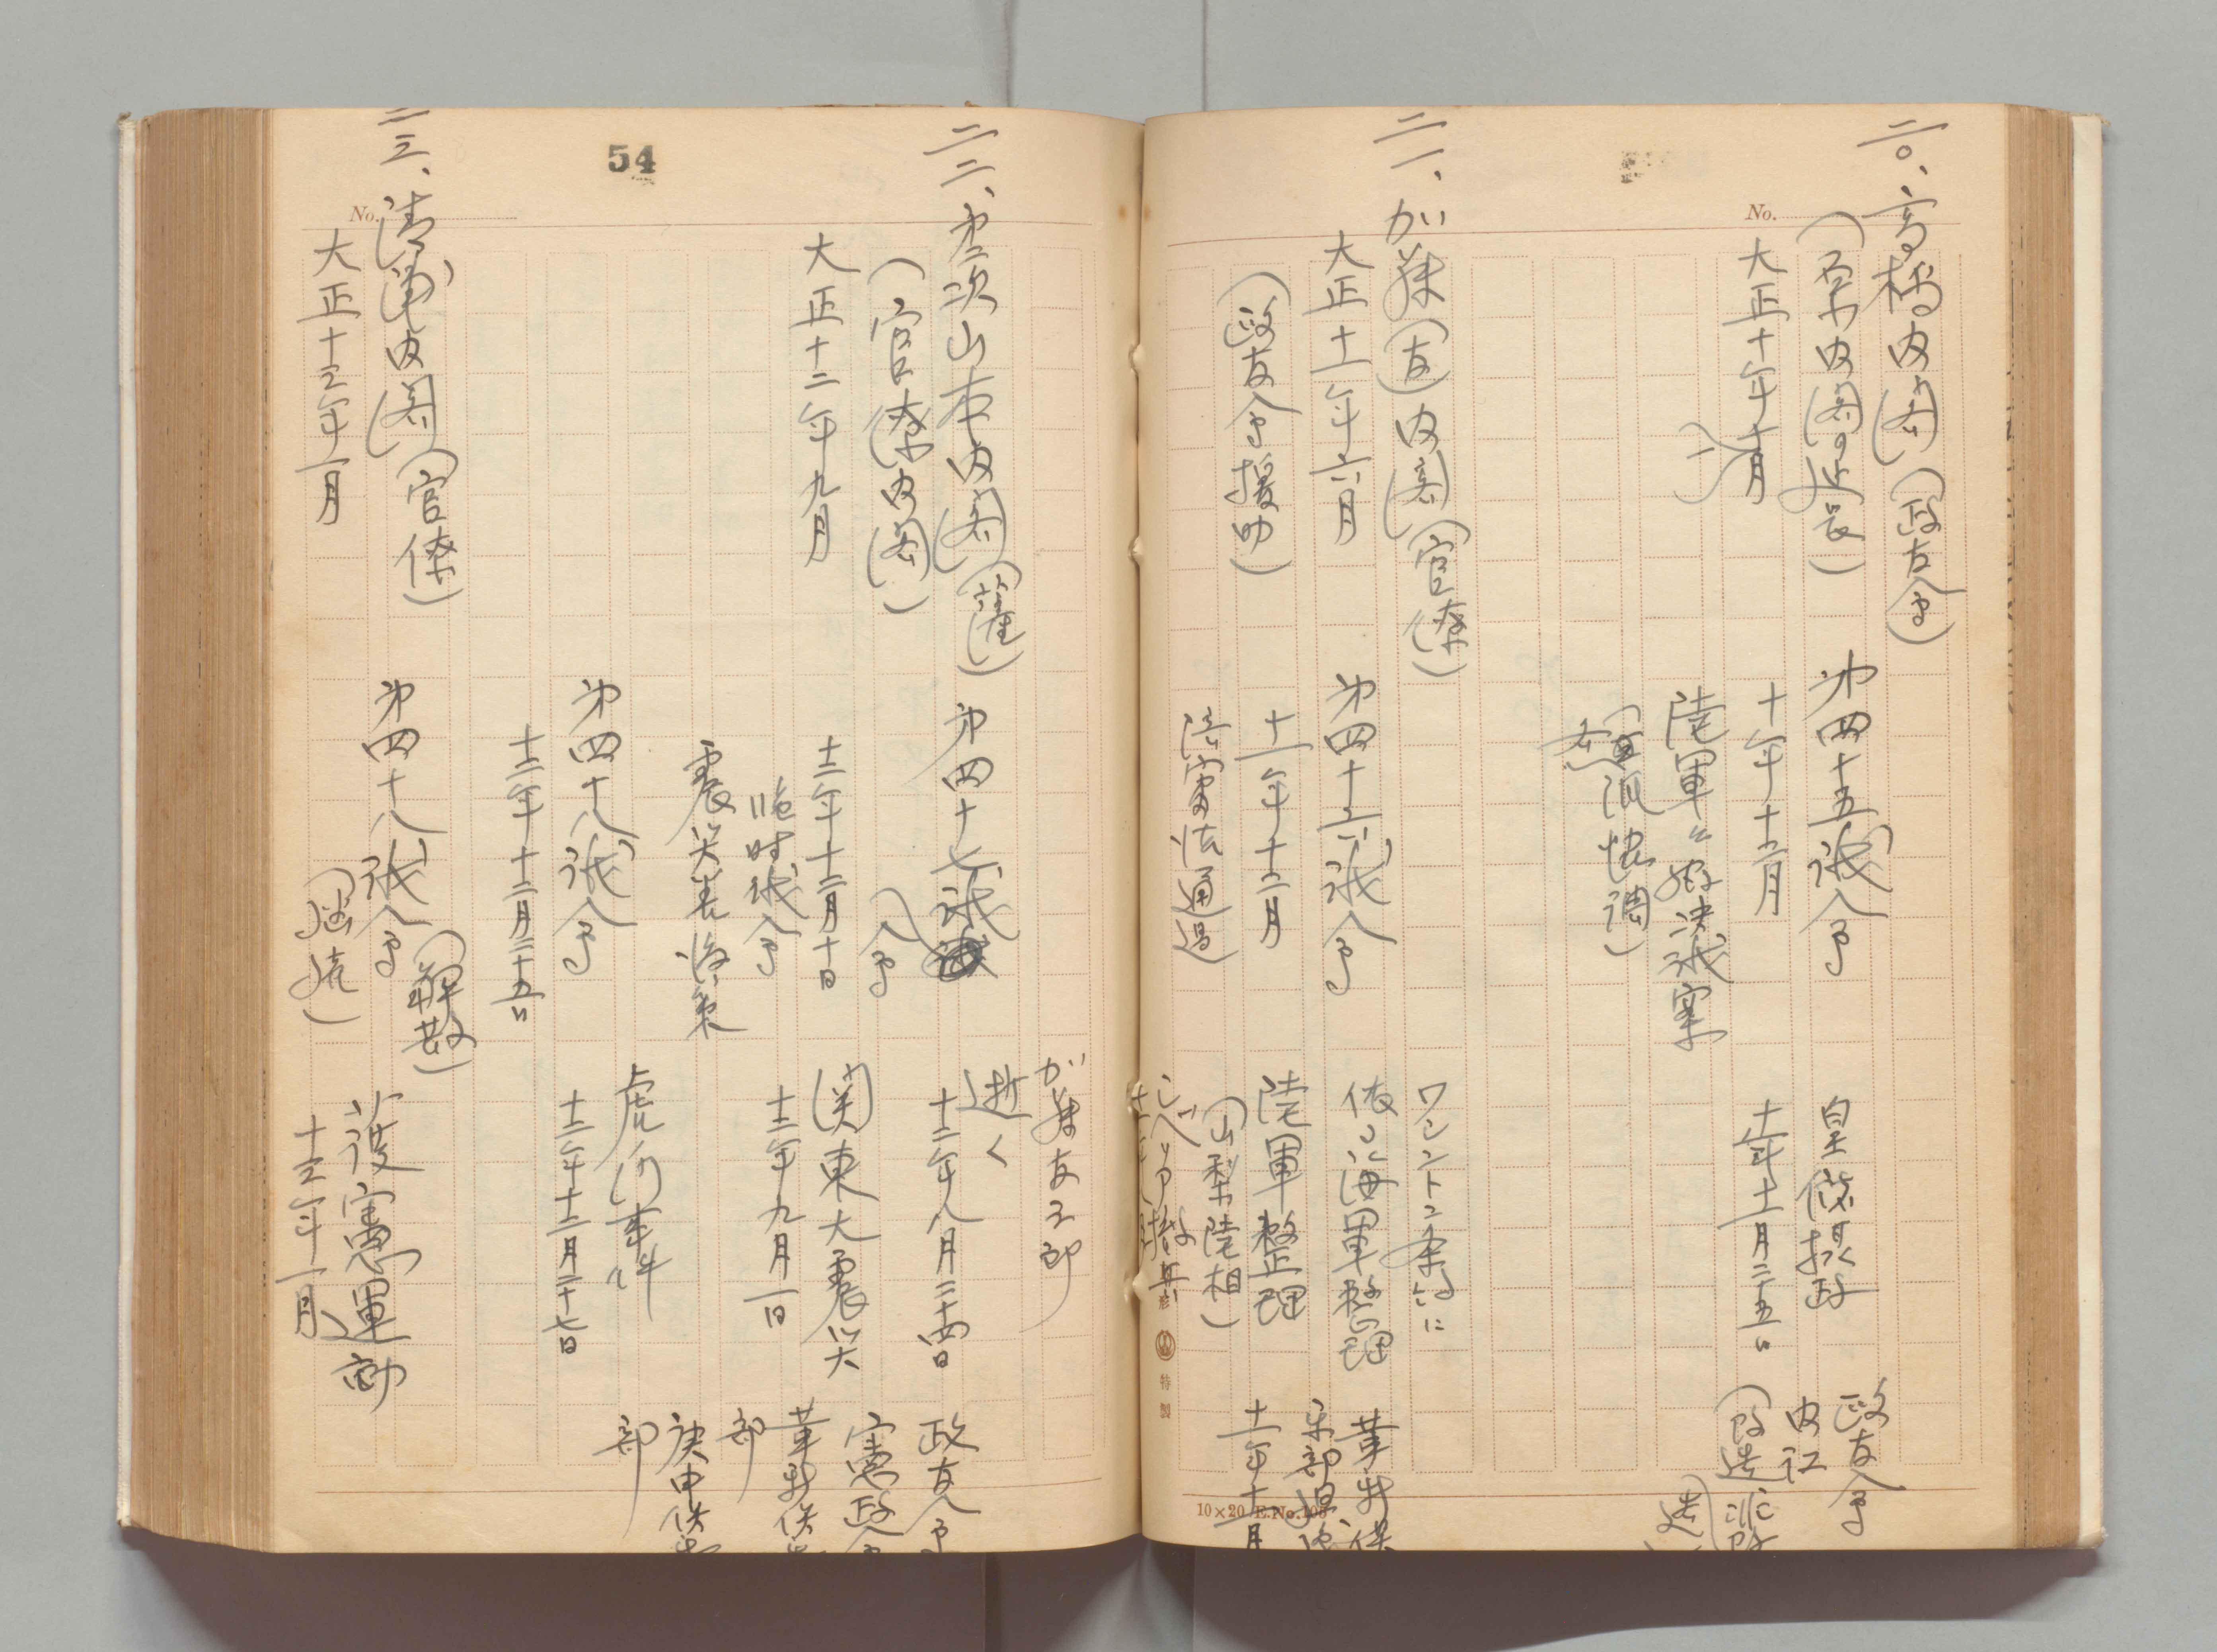 二〇、高橋内閣(政友会)
(原内閣の延長)
大正十年十一月
第四十五議会
十年十二月
陸軍
協調)
皇儲摂政
十年十一月二十五日
政友会
内訌
(改造非改
造)
No.
二一、加藤(友)内閣(官僚)
大正十一年六月
(政友会援助)
第四十六議会
十一年十二月
陪審法通過
ワシントン条約に
依る海軍整理
陸軍整理
(山梨陸相)
革新倶
楽部
十一年十一月
特製
10×20 E.No.105
54
二二、第二次山本内閣(薩)
(官僚内閣)
大正十二年九月
第四十七議
会
十二年十二月十日
臨時議会
震災善後策
第四十八議会
十二年十二月二十五日
加藤友三郎
逝く
十二年八月二十四日
関東大震災
十二年九月一日
虎ノ門事件
十二年十二月二十七日
政友会
憲政会
革新倶楽
部
庚申倶楽
部
No.
二三、清浦内閣(官僚)
大正十三年一月
第四十八議会
(解散)
護憲運動
十三年一月